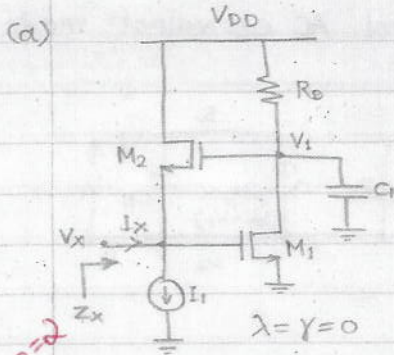 (a)
VDD
RD
V1
M2
C1
Ix
Vx
M1
Zx
I1
λ = γ = 0
=2